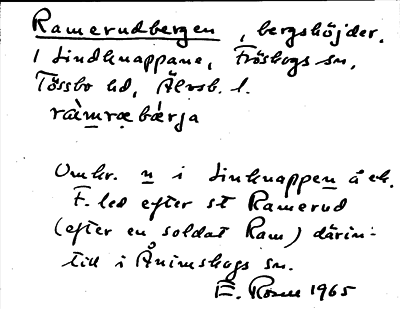 Ramerudbergen, bergshöjder.
i Lindknappane, Fröskogs sn,
Tössbo hd, Älvsb. l.
ràmræ bærja
Omkr. n i Linknappen å ek.
F. led efter st Ramerud
(efter en soldat Ram) därin-
till i Ånimskogs sn.
E. 1965